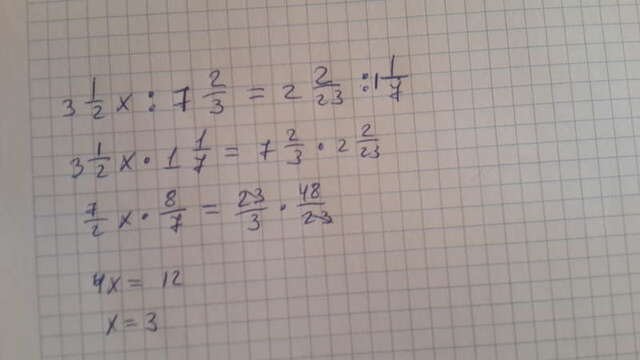 3 1/2 x : 7 2/3 = 2 2/23 : 1 1/7
3 1/2 x · 1 1/7 = 7 2/3 · 2 2/23
7/2 x · 8/7 = 23/3 · 48/23
4x = 12
x = 3